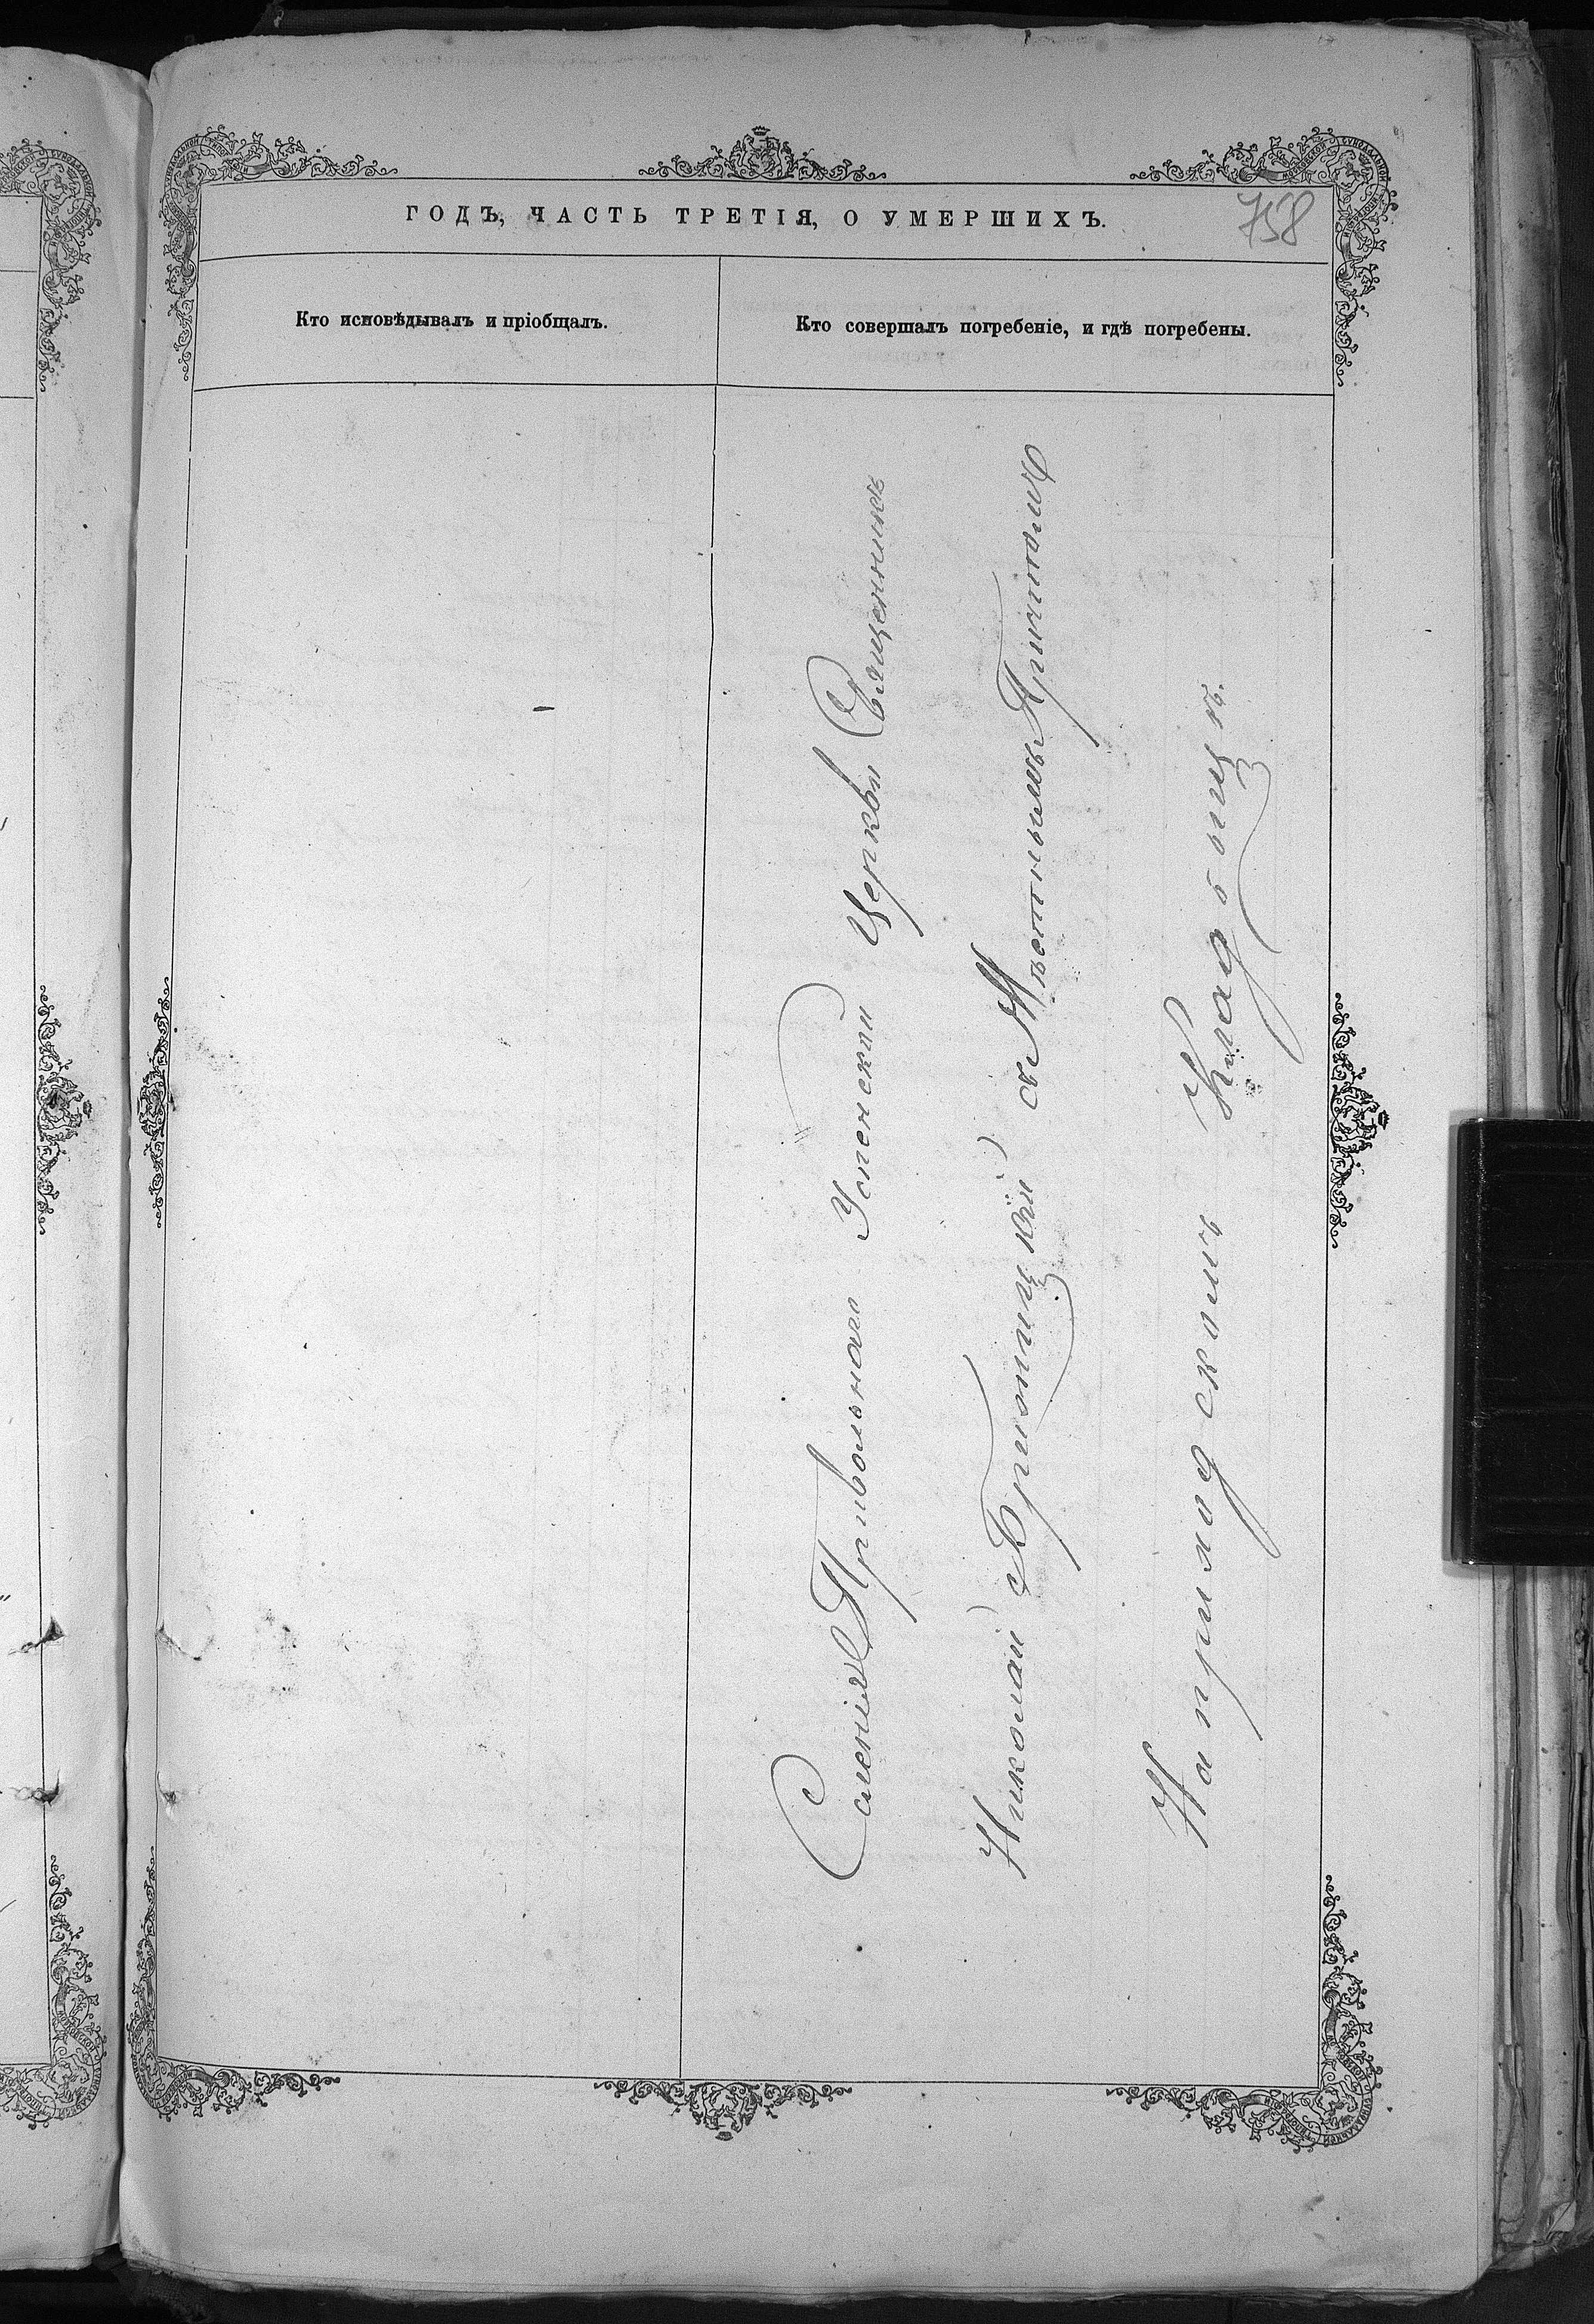 ГОДЪ, ЧАСТЬ ТРЕТІЯ, О УМЕРШИХЪ.
758
Кто исповѣдывалъ и пріобщалъ.
Кто совершалъ погребеніе, и гдѣ погребены.
Селенія Привольнаго Успенской Церкви Священникъ
Николай съ Мѣстнымъ Причтомъ
На приходскомъ Кладбищѣ.